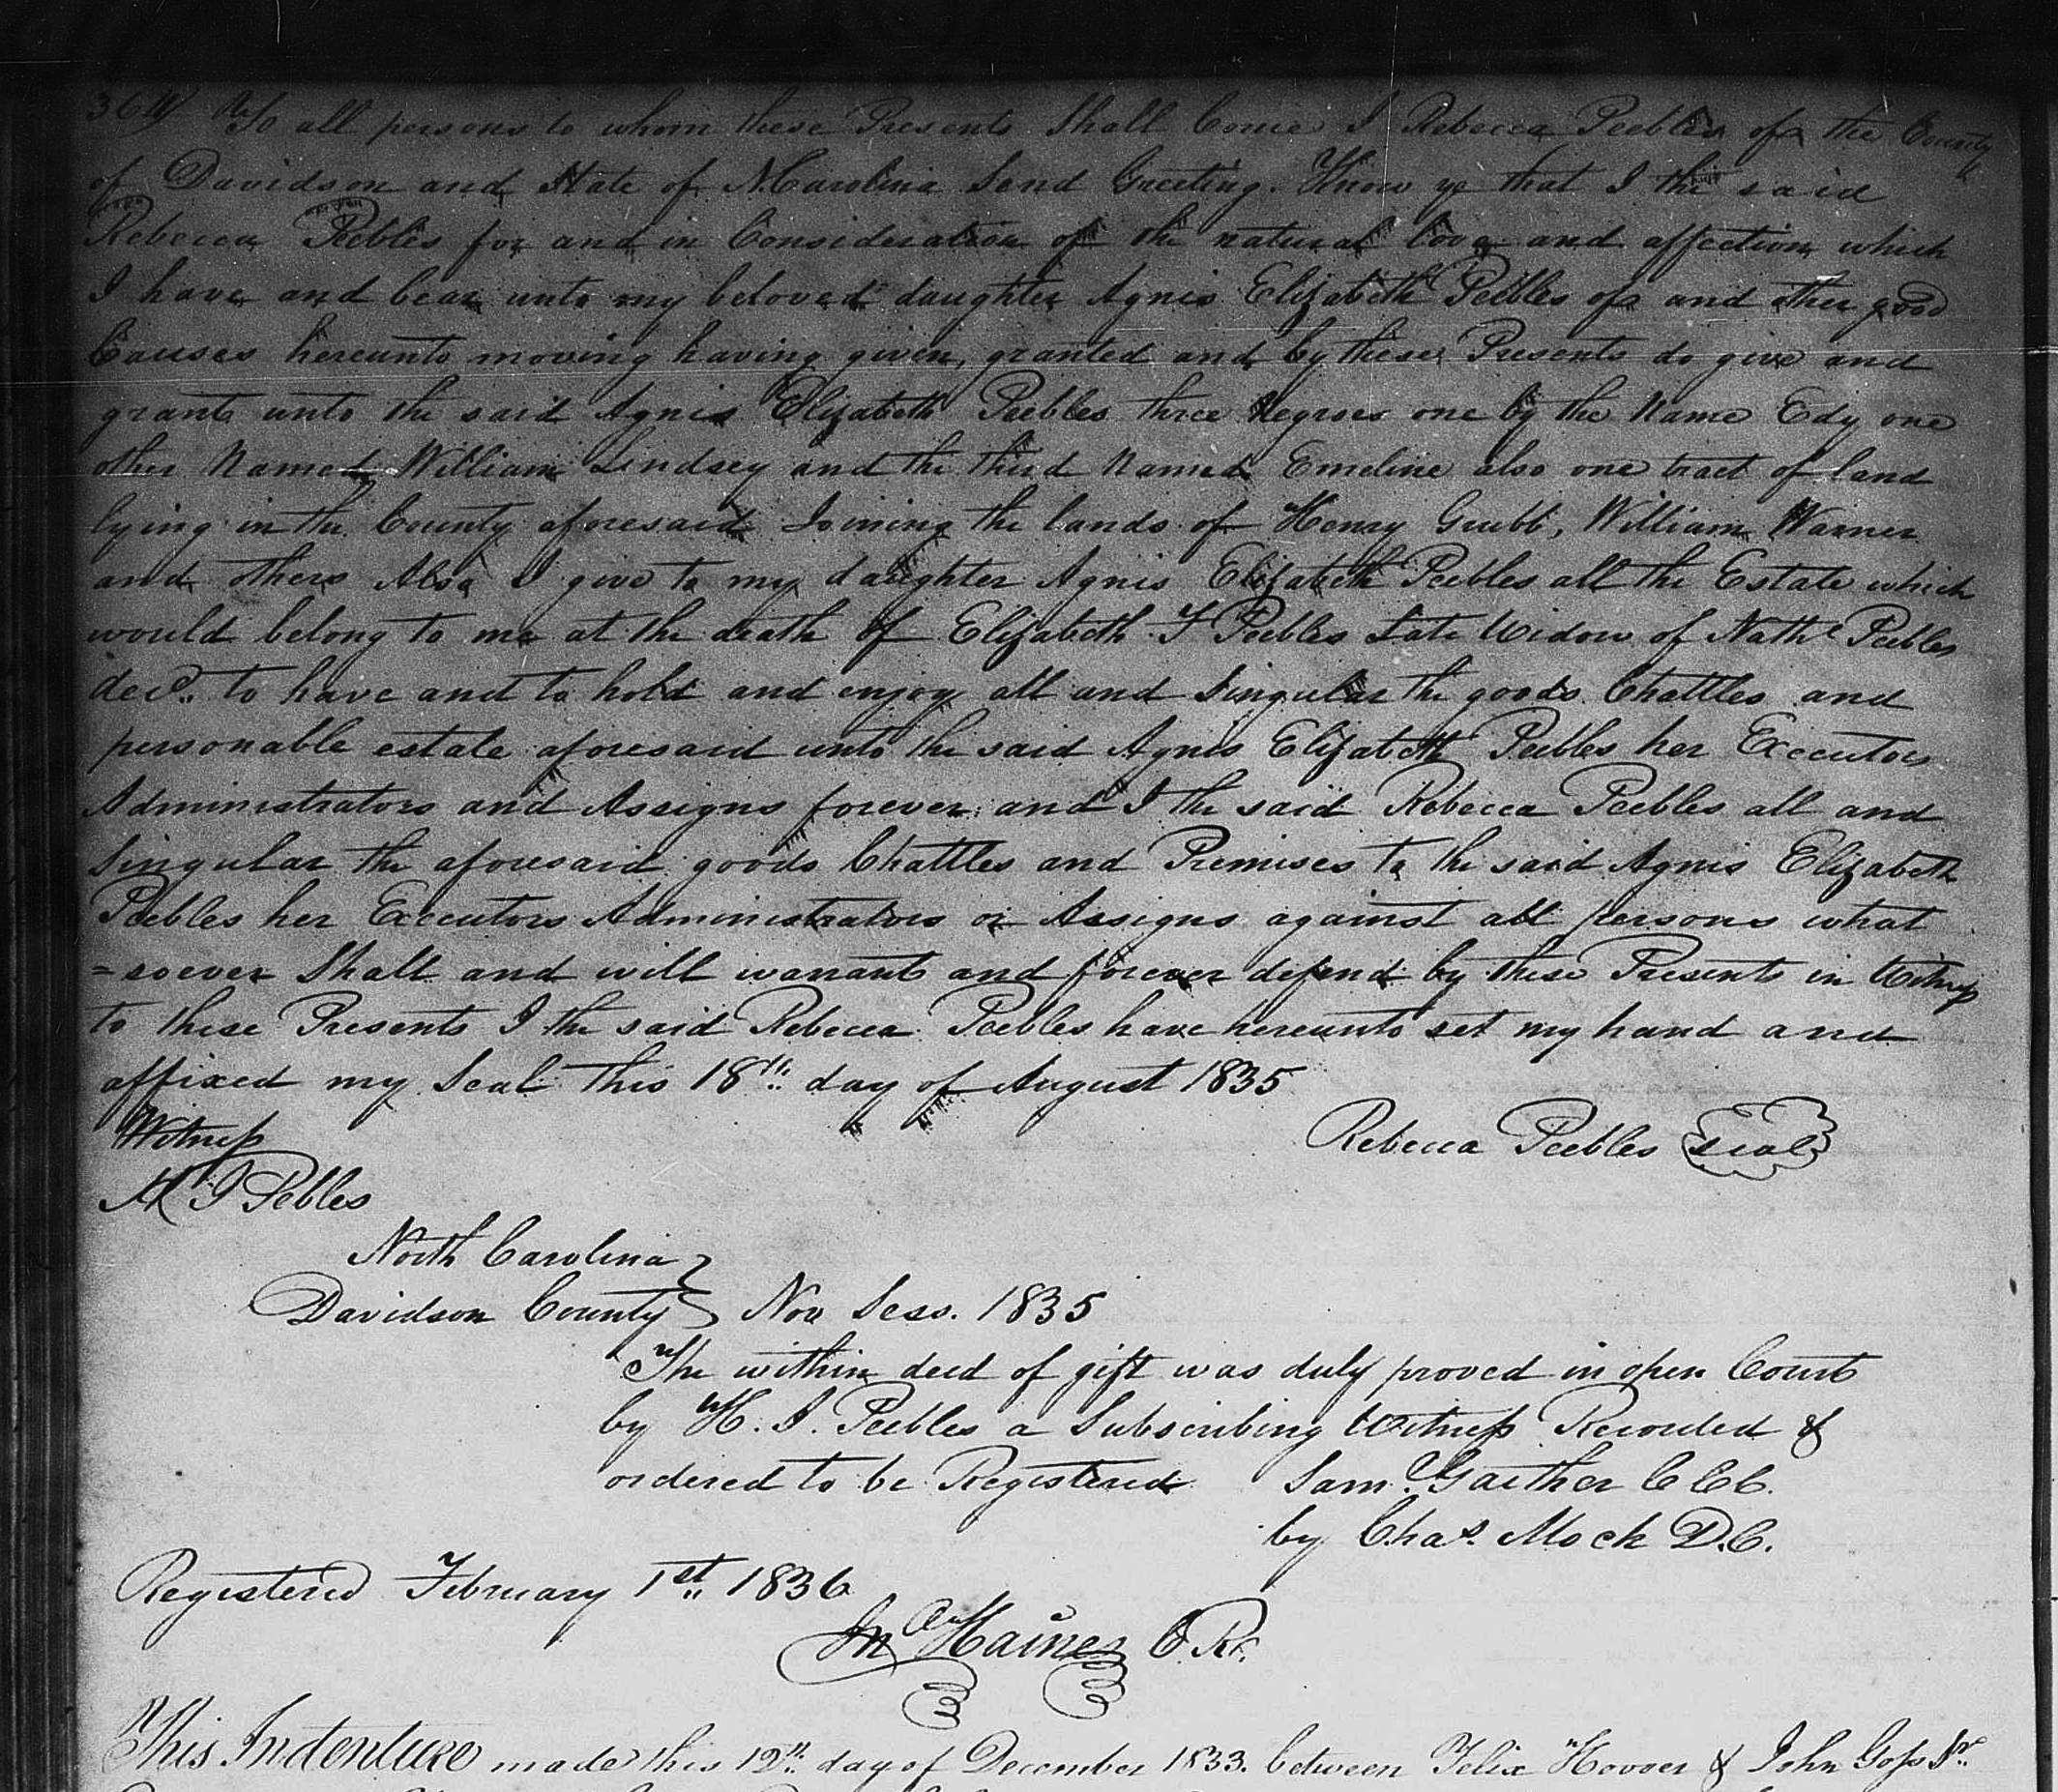 364 To all persons to whom these Presents Shall Come I Rebecca Peebles of the County
of Davidson and State of N. Carolina Send Greeting. Know ye that I the said
Rebecca Peebles for and in Consideration of the natural love and affection which
I have and bear unto my beloved daughter Agnis Elizabeth Peebles of and other good
Causes hereunto moving having given, granted and by these Presents do give and
grant unto the said Agnis Elizabeth Peebles three Negroes one by the Name Edy one
other Named William Lindsey and the third Named Emeline also one tract of land
lying in the County aforesaid Joining the lands of Henry Grubb, William Warner
and others Also I give to my daughter Agnis Elizabeth Peebles all the Estate which
would belong to me at the death of Elizabeth F Peebles Late Widow of Nathl Peebles
decd. to have and to hold and enjoy all and Singular the goods Chattles and
personable estate aforesaid unto the said Agnis Elizabeth Peebles her Executors
Administrators and Assigns forever and I the said Rebecca Peebles all and
Singular the aforesaid goods Chattles and Premises to the said Agnis Elizabeth
Peebles her Executors Administrators or Assigns against all persons what
=soever Shall and will warrant and forever defend by these Presents in Witness
to these Presents I the said Rebecca Peebles have hereunto set my hand and
affixed my Seal this 18th day of August 1835
Witness
Rebecca Peebles seal
H J Pebles
North Carolina }
Davidson County } Nov Sess. 1835
The within deed of gift was duly proved in open Court
by H. J. Peebles a Subscribing Witness Recorded &
ordered to be Registered Saml. Gaither C C C.
by Chas. Mock D.C.
Registered February 1st 1836
Jn Haines C. R.
This Indenture made this 12th day of December 1833. between Felix Hoover & John Goss Sr.